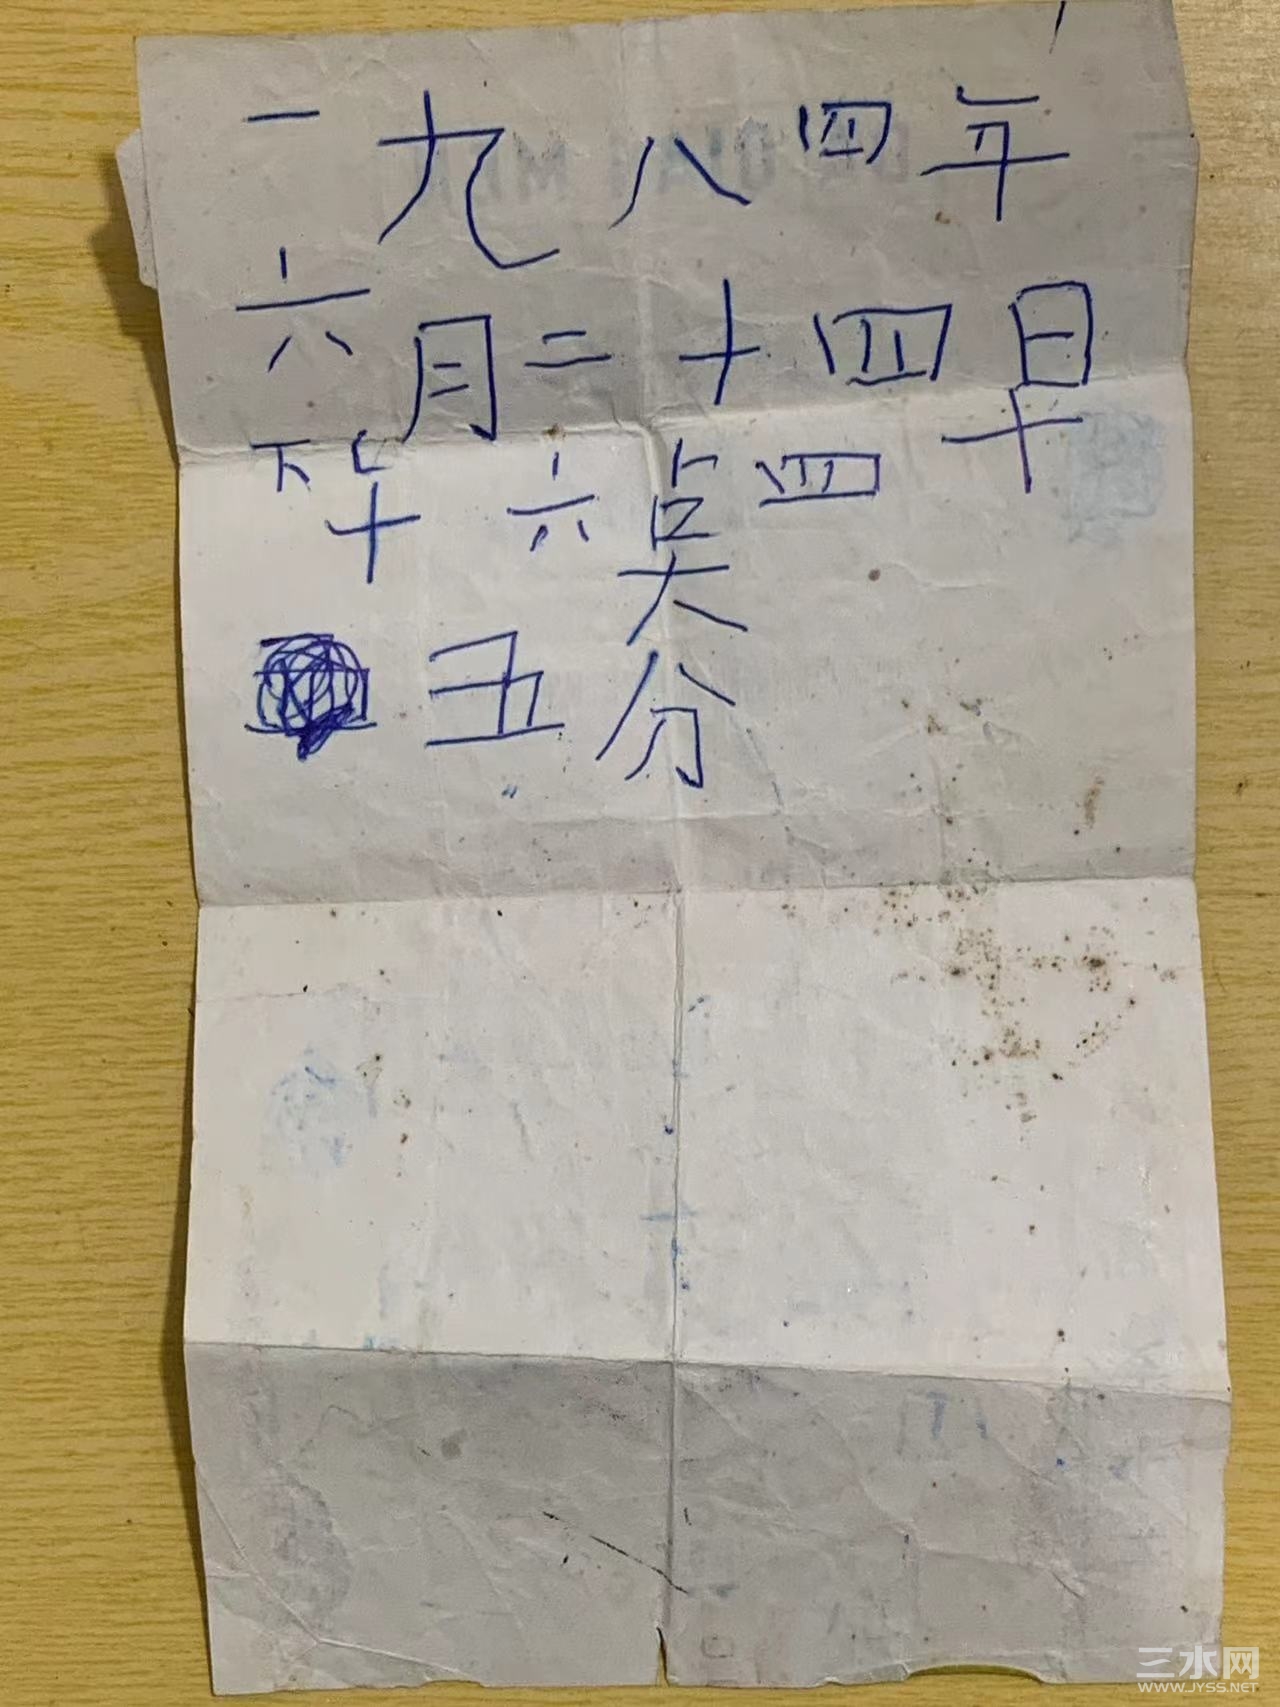 一九八四年
六月二十四日
下午六点四十
五分
三水网
WWW.JYSS.NET